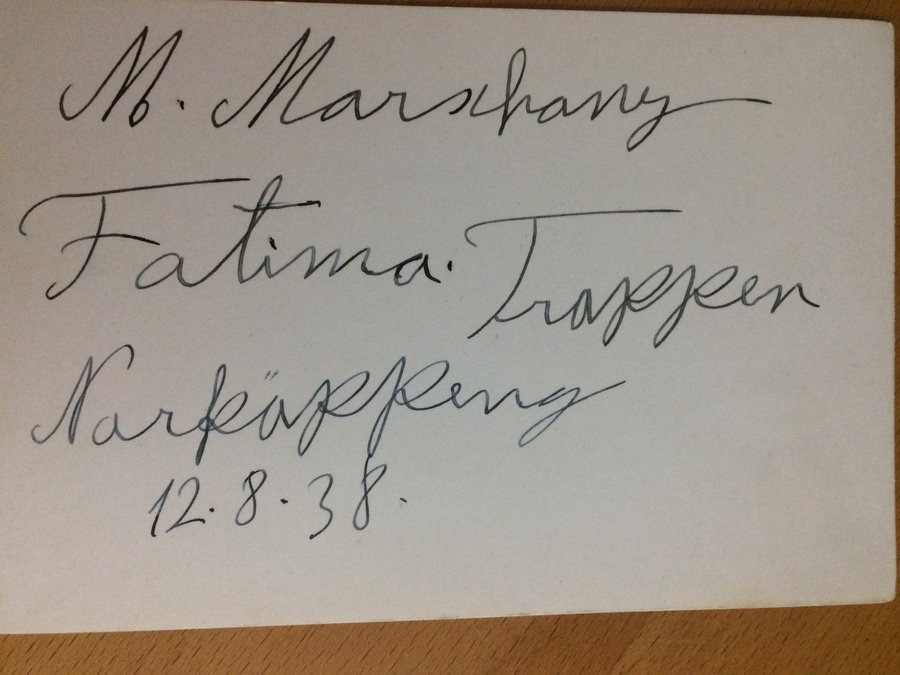 M. Marschany
Fatima. Trappen
Norköppeng
12.8.38.